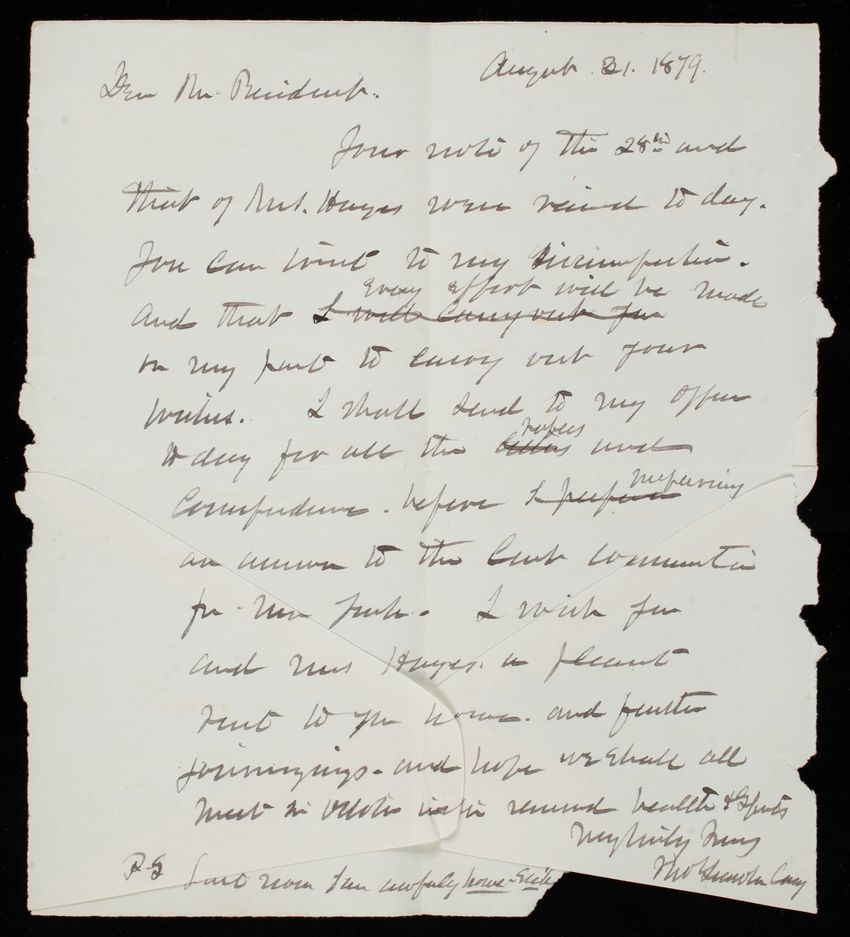 August 31. 1879.
Dear Mr. President.
Your note of the 28th and
that of Mrs. Hayes were received to day.
You can trust to my
Every effort will be made
and that I will carry out your
on my part to carry out your
wishes. I shall send to my office
papers
to day for all the and
before
preparing
an answer to the last
New York. I wish you
and Mrs Hayes. a pleasant
visit to your home. and further
journeyings. and hope we shall all
meet in with renewed health & spirits
Very truly Yours
Thos Lincoln Casey
P.S Just now I am awfully home-sick